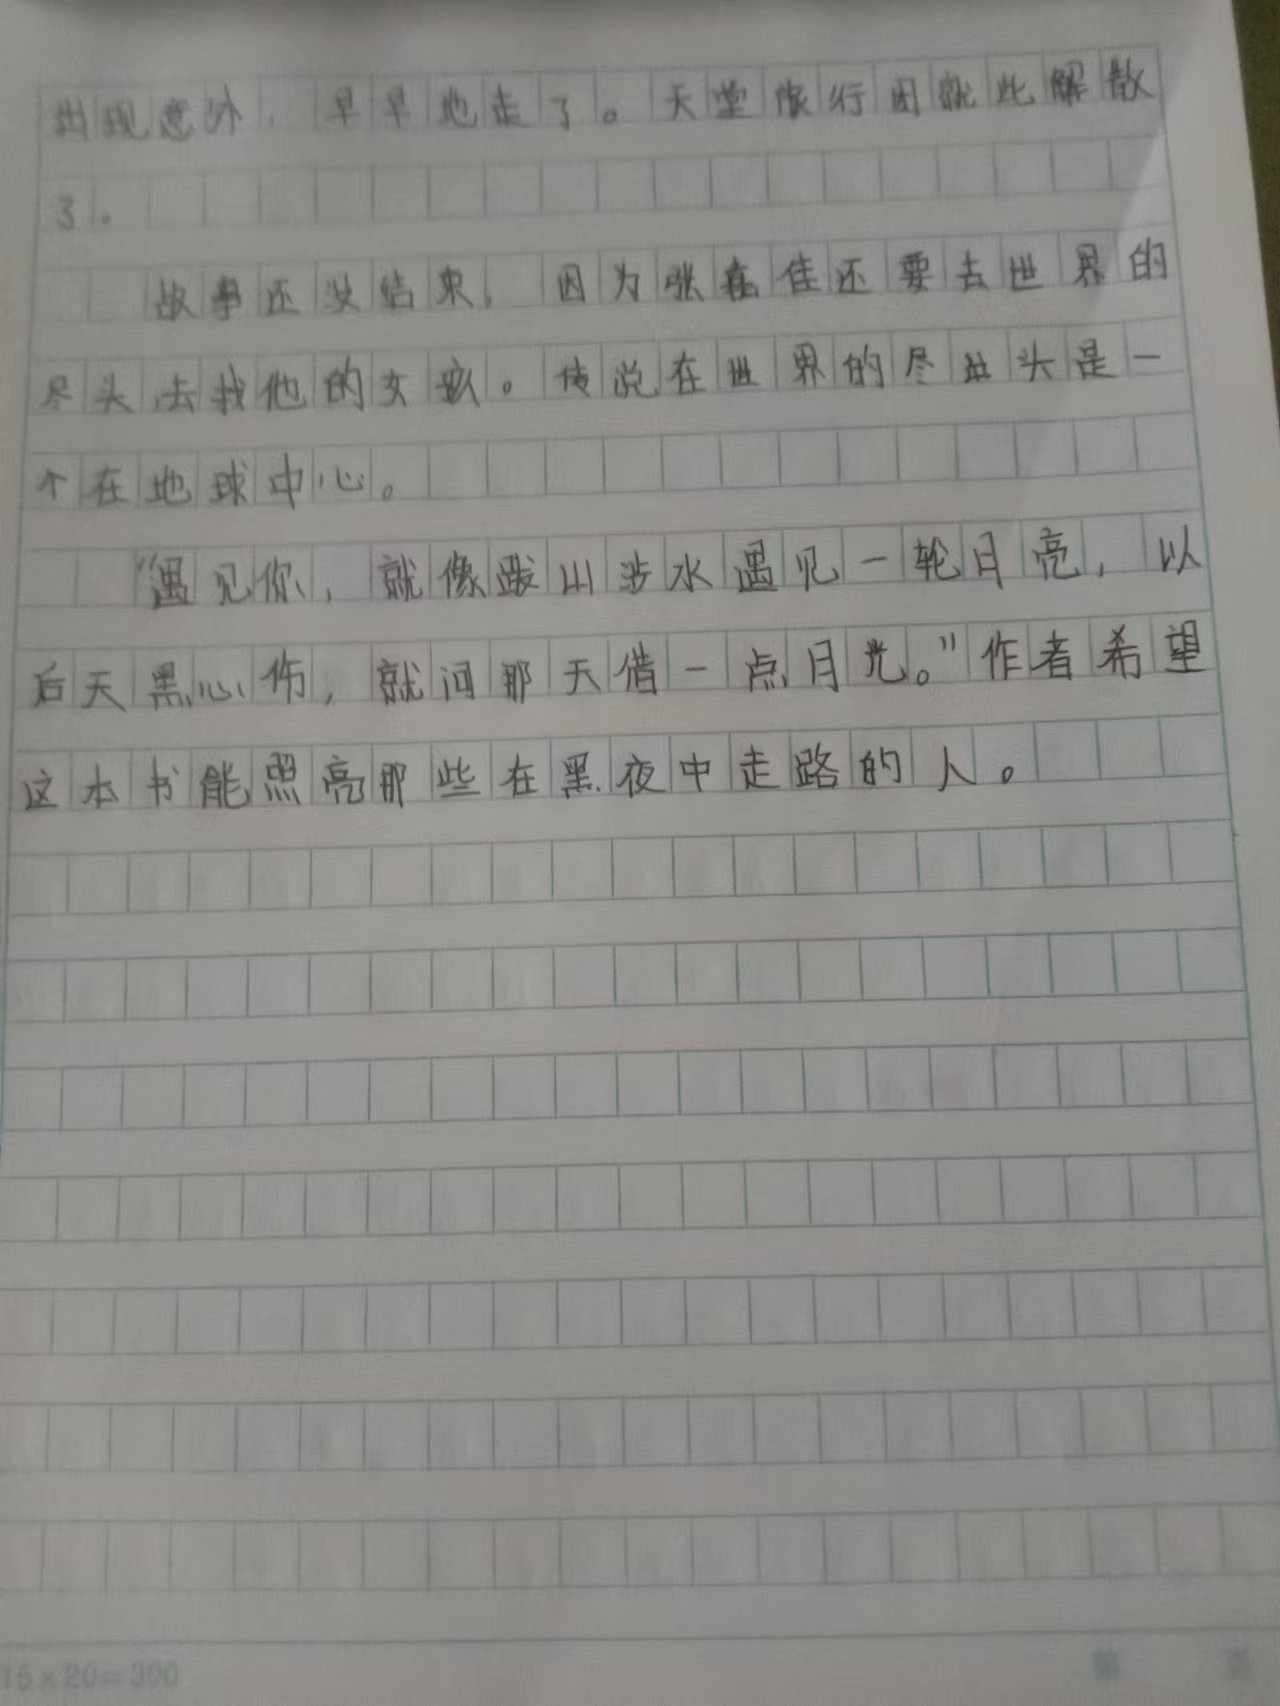 出现意外，早早地走了。天堂旅行团就此解散
了。
故事还没结束，因为张嘉佳还要去世界的
尽头去找他的女孩。传说在世界的尽头是一
个在地球中心。
“遇见你，就像跋山涉水遇见一轮月亮，以
后天黑心伤，就问那天借一点月光。”作者希望
这本书能照亮那些在黑夜中走路的人。
15×20=300
第 页